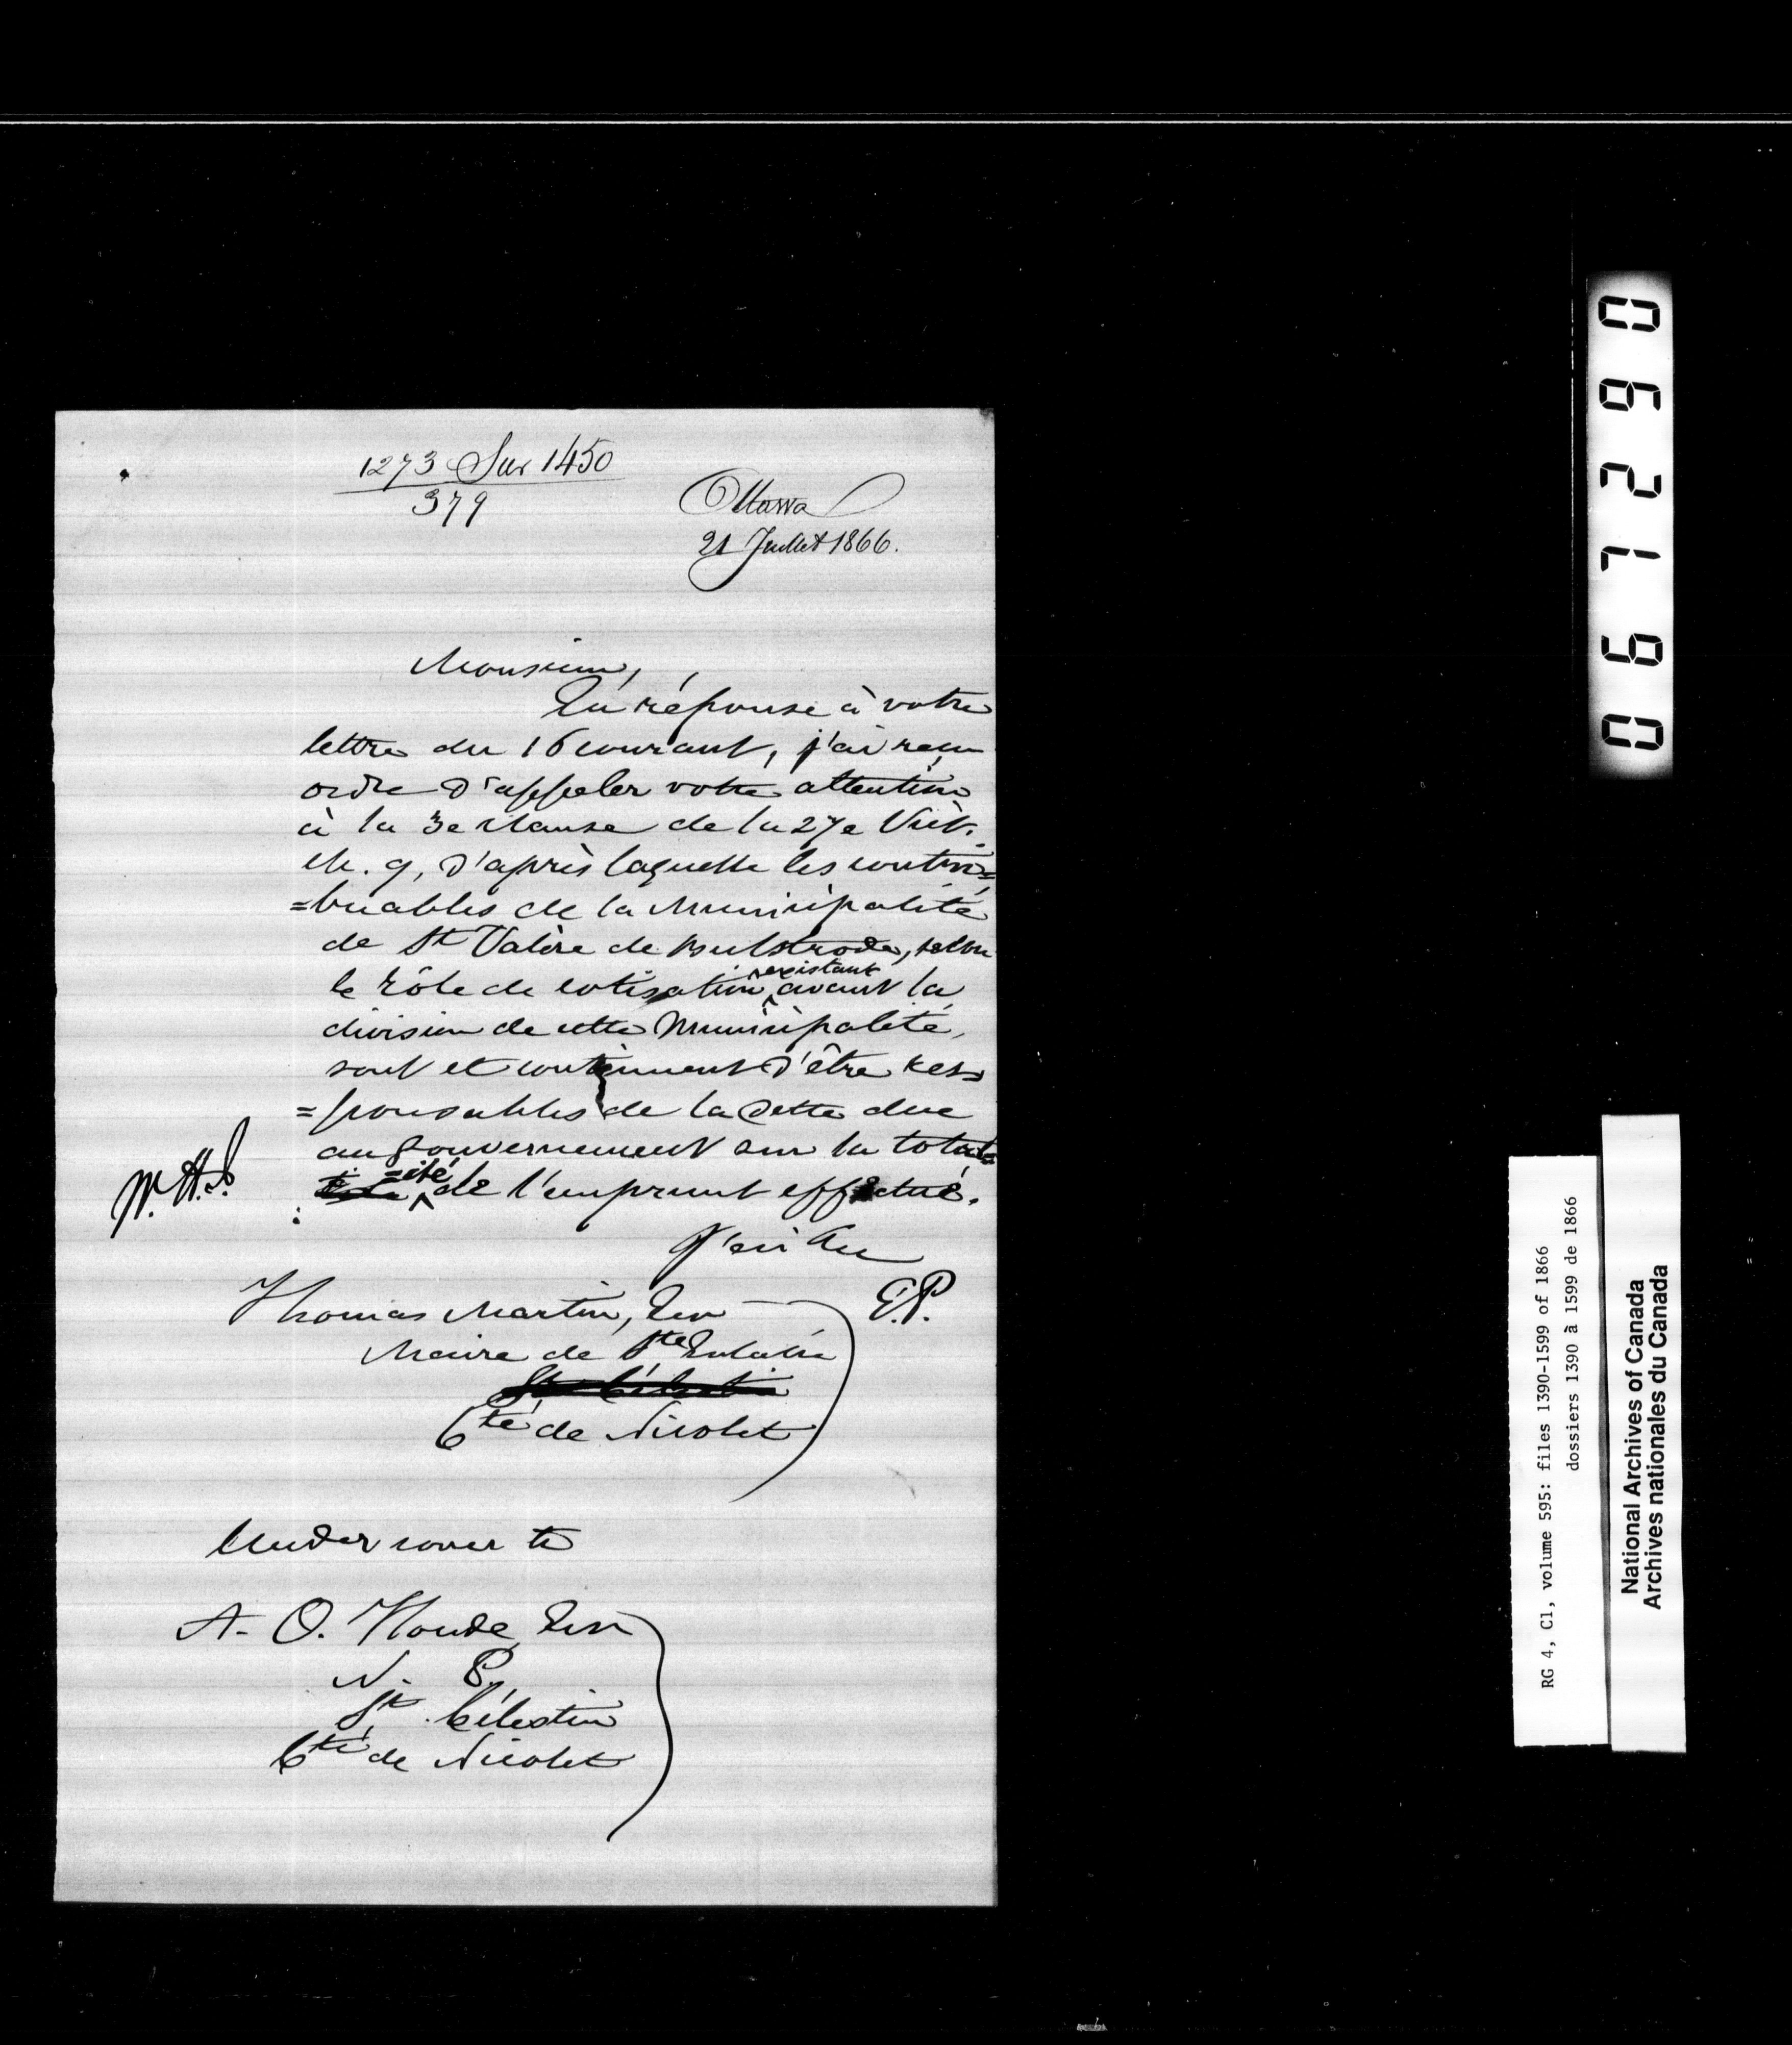 1273 Sur 1450
379
Ottawa
21 Juillet 1866.
Monsieur,
En réponse à votre
lettre du 16 courant, j'ai reçu
ordre d'appeler votre attention
à la 3e clause de la 27e Vict.
ch. 9, d'après laquelle les contri=
=buables de la Municipalité
de St Valère de Bulstrode, selon
le rôle de cotisation existant avant la
division de cette Municipalité,
sont et continuent d'être res=
=ponsables de la dette due
au Gouvernement sur la total=
=ité de l'emprunt effectué.
J'ai &c
W. H. J.
E. P.
Thomas Martin, Ecr
Maire de Ste Eulalie
St Célestin
Cté de Nicolet
Under cover to
A. O. Houde Ecr
N. P.
St Célestin
Cté de Nicolet
067290
RG 4, C1, volume 595: files 1390-1599 of 1866
dossiers 1390 à 1599 de 1866
National Archives of Canada
Archives nationales du Canada